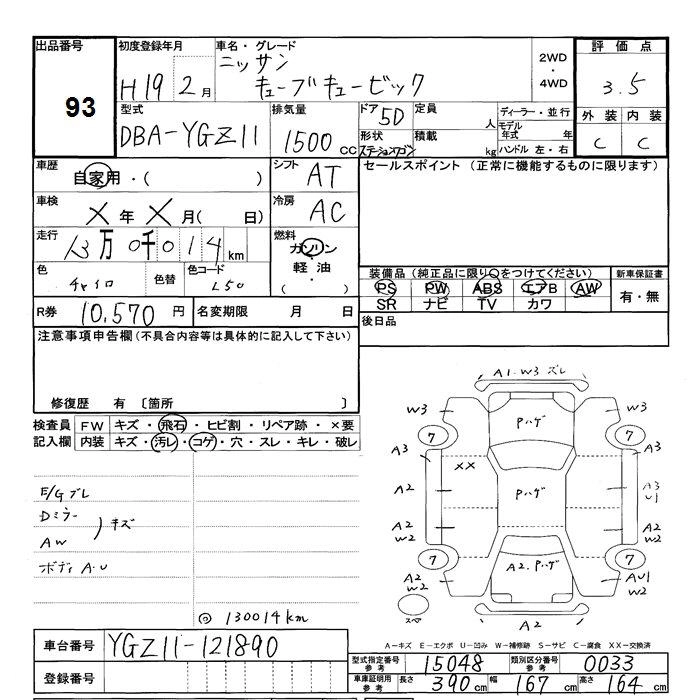 出品番号 初度登録年月 車名・グレード 評価点
93 H19 2月 ニッサン キューブキュービック 2WD・4WD 3.5
型式 排気量 ドア 5D 定員 人 ディーラー・並行 外装 内装
DBA-YGZ11 1500cc 形状 ステーションワゴン 積載 kg モデル年式 年 ハンドル 左・右 C C
車歴 自家用・( ) シフト AT セールスポイント (正常に機能するものに限ります)
車検 X年X月( 日) 冷房 AC
走行 13万0千014km 燃料 ガソリン・軽油・( )
色 チャイロ 色替 色コード L50
装備品 (純正品に限り○をつけてください) 新車保証書
PS PW ABS エアB AW 有・無
SR ナビ TV カワ
R券 10,570円 名変期限 月 日 後日品
注意事項申告欄(不具合内容等は具体的に記入して下さい)
修復歴 有 〔箇所 〕
検査員 FW キズ・飛石・ヒビ割・リペア跡・×要
記入欄 内装 キズ・汚レ・コゲ・穴・スレ・キレ・破レ
E/Gブレ
Dミラー
AW
キズ
ボディA・U
◎130014km
A1・W3 ズレ
W3 Pハゲ W3
7 7
A3 XX A3
A2 Pハゲ A3 U1
A2 W2 A2 W2
7 7
A2 W2 A2.Pハゲ AU1 W2
A2
A-キズ E-エクボ U-凹み W-補修跡 S-サビ C-腐食 XX-交換済
車台番号 YGZ11-121890 型式指定番号 参考 15048 類別区分番号 参考 0033
登録番号 車庫証明用 参考 長さ 390cm 幅 167cm 高さ 164cm